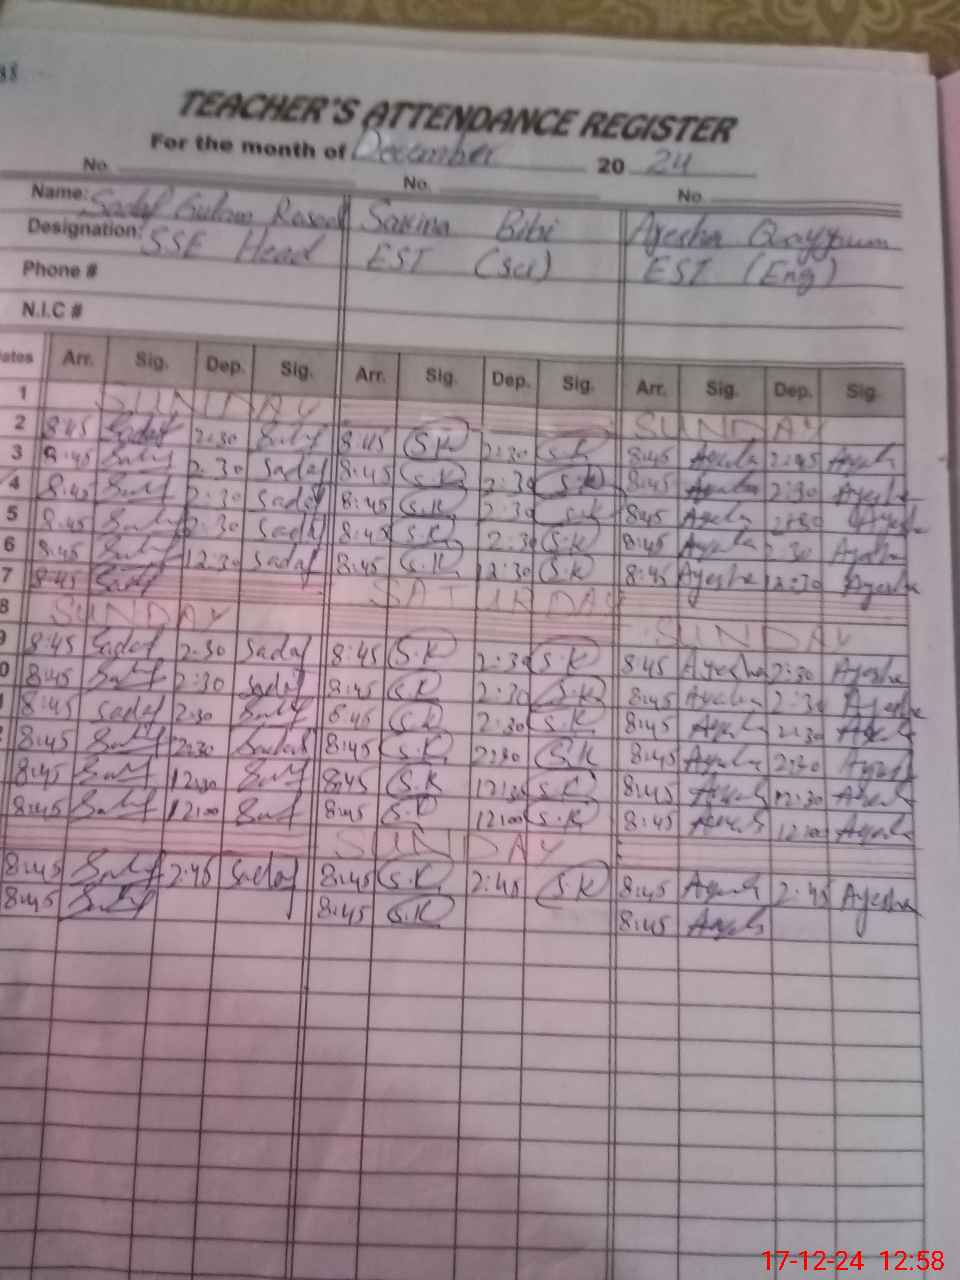 TEACHER'S ATTENDANCE REGISTER
For the month of December 20 24
No. No. No.
Name: Sadaf Gulam Rasool Sakina Bibi Ayesha Qayyum
Designation: SSE Head EST (Sci) EST (Eng)
Phone #
N.I.C #
Arr. Sig. Dep. Sig. Arr. Sig. Dep. Sig. Arr. Sig. Dep. Sig.
1 SUNDAY SUNDAY
2 8:45 Sadaf 2:30 8:45 S.K 2:30 S.K 8:45 Ayesha 2:45 Ayesha
3 8:45 2:30 Sadaf 8:45 S.K 2:30 S.K 8:45 Ayesha 2:30 Ayesha
4 8:45 2:30 Sadaf 8:45 S.K 2:30 S.K 8:45 Ayesha 2:30 Ayesha
5 8:45 2:30 Sadaf 8:45 S.K 2:30 S.K 8:45 Ayesha 2:30 Ayesha
6 8:45 12:30 Sadaf 8:45 S.K 12:30 S.K 8:45 Ayesha 12:30 Ayesha
7 8:45 Sadaf SATURDAY
8 SUNDAY SUNDAY
9 8:45 Sadaf 2:30 Sadaf 8:45 S.K 2:30 S.K 8:45 Ayesha 2:30 Ayesha
0 8:45 2:30 Sadaf 8:45 S.K 2:30 S.K 8:45 Ayesha 2:30 Ayesha
8:45 Sadaf 2:30 8:45 S.K 2:30 S.K 8:45 Ayesha 2:30 Ayesha
8:45 2:30 Sadaf 8:45 S.K 2:30 S.K 8:45 Ayesha 2:30 Ayesha
8:45 12:30 8:45 S.K 12:30 S.K 8:45 Ayesha 12:30 Ayesha
8:45 12:00 8:45 S.K 12:00 S.K 8:45 Ayesha 12:00 Ayesha
SUNDAY
8:45 2:45 Sadaf 8:45 S.K 2:45 S.K 8:45 Ayesha 2:45 Ayesha
8:45 8:45 S.K 8:45 Ayesha
17-12-24 12:58